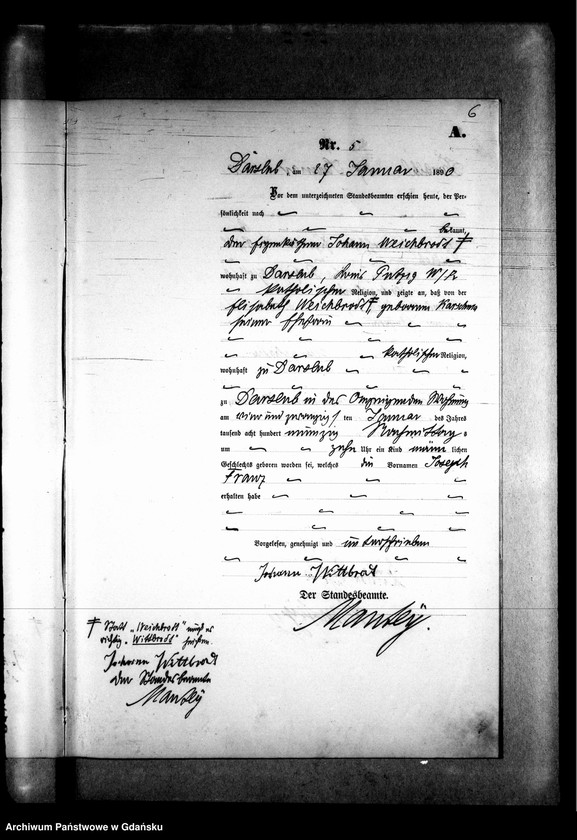 6
A.
Nr. 5
Darslub, am 27 Januar 1890
Vor dem unterzeichneten Standesbeamten erschien heute, der Per-
sönlichkeit nach
bekannt,
der Johann Weichbrodt ‡
wohnhaft zu Darslub, Kreis Putzig W/Pr
katholischer Religion, und zeigte an, daß von der
Elisabeth Weichbrodt‡, geborenen
seiner Ehefrau
katholischer Religion,
wohnhaft zu Darslub
zu Darslub in des Anzeigenden Wohnung
am vier und zwanzig ten Januar des Jahres
tausend acht hundert neunzig Nachmittag s
um zehn Uhr ein Kind männ lichen
Geschlechts geboren worden sei, welches die Vornamen Joseph
Franz
erhalten habe
Vorgelesen, genehmigt und unterschrieben
Johann Wittbrat
Der Standesbeamte.
‡ Statt „Weichbrodt" muß es
richtig „Wittbrodt" heißen.
Johann Wittbrat
Der Standesbeamte
Archiwum Państwowe w Gdańsku